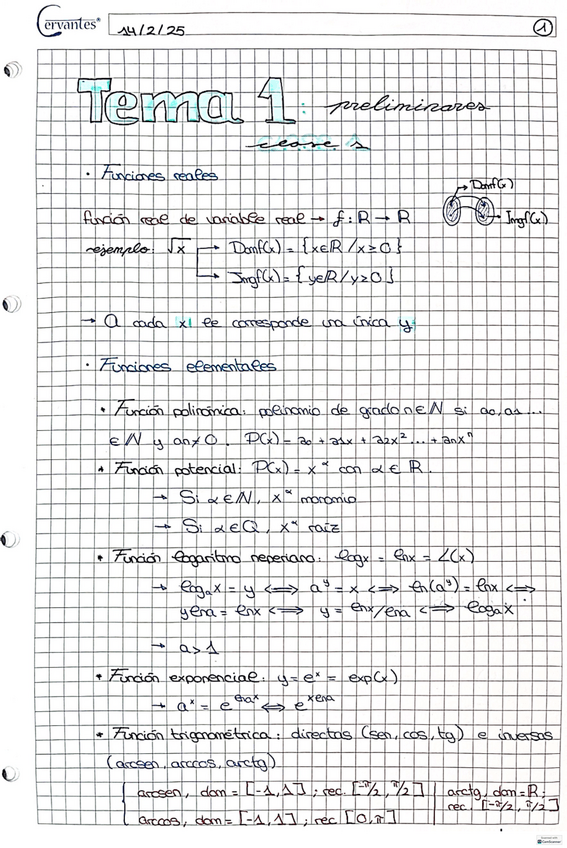 Cervantes®
14/2/25
1
Tema 1: preliminares
clase 1
· Funciones reales
Domf(x)
Imgf(x)
función real de variable real → f: ℝ → ℝ
ejemplo: √x → Domf(x) = {x∈ℝ / x≥0}
→ Imgf(x) = {y∈ℝ / y≥0}
→ A cada x le corresponde una única y
· Funciones elementales
• Función polinómica: polinomio de grado n∈ℕ si a₀, a₁ ...
∈ℕ y an≠0. P(x) = a₀ + a₁x + a₂x² ... + anxⁿ
• Función potencial: P(x) = x^α con α ∈ ℝ.
→ Si α∈ℕ, x^α monomio
→ Si α∈Q, x^α raíz
• Función logaritmo neperiano: logx = lnx = L(x)
→ logₐx = y ⟺ a^y = x ⟺ ln(a^y) = lnx ⟺
ylna = lnx ⟺ y = lnx/lna ⟺ logₐx
→ a>1
• Función exponencial: y = e^x = exp(x)
→ a^x = e^lna^x ⟺ e^xlna
• Función trigonométrica: directas (sen, cos, tg) e inversas
(arcsen, arccos, arctg)
arcsen, dom = [-1,1]; rec. [-π/2, π/2]
arccos, dom = [-1,1]; rec [0,π]
arctg, dom = ℝ;
rec. [-π/2, π/2]
CamScanner